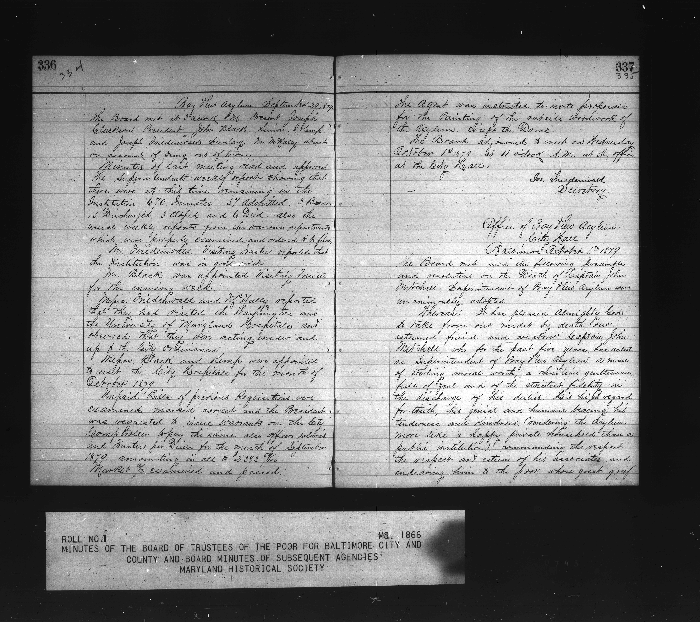 336
334
Bay View Asylum September 29, 1879
The Board met at
Clarkson President John Black
and Joseph Friedenwald
on account of being out of town
Minutes of last meeting read and approved
The Superintendent's weekly report showing that
there were at this time remaining in the
Institution 676 Inmates 27 Admitted 3 Born
15 Discharged 3 Eloped and 6 Died. also the
usual weekly reports from the various departments
which were properly examined and ordered to be filed
Mr. Friedenwald Visiting Trustee reported that
the Institution was in good order
Mr. Black was appointed Visiting Trustee
for the ensuing week.
Messrs. Friedenwald and reported
that they had visited the Washington and
the University of Maryland Hospitals and
observed that they were acting under and
up to the City Ordinances
Messrs. Black and Kemp were appointed
to visit the City Hospitals for the month of
October 1879
Unpaid Bills of previous Requisitions were
examined marked correct and the President
was requested to issue warrants on the City
also officers salaries
for the month of September
1879 amounting in all to
Market examined and passed.
337
335
The Agent was instructed to invite proposals
for the Painting of the outside Woodwork of
the Asylum
The Board adjourned to meet on Wednesday
October 1st 1879 at 11 o'clock A.M. at the office
at the City Hall.
Jos. Friedenwald
Secretary
Office of Bay View Asylum
City Hall
Baltimore October 1st 1879
The Board met and the following preamble
and resolutions on the Death of Captain John
Mitchell Superintendent of Bay View Asylum were
unanimously adopted
Whereas It has pleased Almighty God
to take from our midst by death our
esteemed friend and Captain John
Mitchell who for the past five years has acted
as Superintendent of Bay View Asylum a man
of sterling moral worth, a christian gentleman
full of zeal and of the strictest fidelity in
the discharge of his duties. His high regard
for truth, his genial and humane bearing his
tenderness and kindness rendering the Asylum
more like a happy private household than a
public institution, commanding the respect
the respect and esteem of his associates and
endearing him to the poor whose great grief
ROLL NO.1 MS. 1866
MINUTES OF THE BOARD OF TRUSTEES OF THE POOR FOR BALTIMORE CITY AND
COUNTY AND BOARD MINUTES OF SUBSEQUENT AGENCIES
MARYLAND HISTORICAL SOCIETY